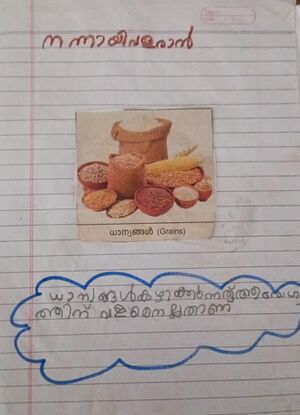 നന്നായിവളരാൻ
ധാന്യങ്ങൾ (Grains)
ധാന്യങ്ങൾകഴിക്കുന്നത്ആരോഗ്യ
ത്തിന് വളരെനല്ലതാണ്